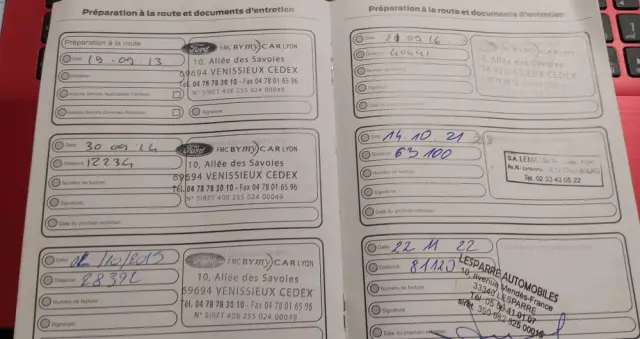 Préparation à la route et documents d'entretien
Préparation à la route
Date 19.09.13
Distance
Signature
Ford FMC BY my CAR LYON
10, Allée des Savoies
69694 VENISSIEUX CEDEX
Tél. 04 78 78 30 10 - Fax 04 78 01 65 96
N° SIRET 408 255 024 00049
Date 30 09 14
Distance 12234
Numéro de facture
Signature
Date du prochain entretien
Ford FMC BY my CAR LYON
10, Allée des Savoies
69694 VENISSIEUX CEDEX
Tél. 04 78 78 30 10 - Fax 04 78 01 65 96
N° SIRET 408 255 024 00049
Date /10/2015
Distance 28392
Numéro de facture
Signature
FMC BY my CAR LYON
10, Allée des Savoies
69694 VENISSIEUX CEDEX
Tél. 04 78 78 30 10 - Fax 04 78 01 65 96
N° SIRET 408 255 024 00049
Préparation à la route et documents d'entretien
Date 21 09 16
Distance
Numéro de facture
Signature
Date du prochain entretien
Date 14.10.21
Distance 63100
Numéro de facture
Signature
Date du prochain entretien
Tél. 02 33 43 05 22
Date 22 11 22
Distance 81120
Numéro de facture
Signature
Date du prochain entretien
LESPARRE AUTOMOBILES
10, avenue Mendès-France
33340 LESPARRE
Tél 05 56 41 01 07